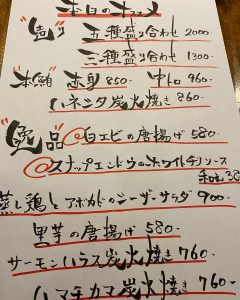 本日のオススメ
"造り" 五種盛り合わせ 2000-
三種盛り合わせ 1300-
"本鮪" 赤身 850- 中トロ 960-
ハネニタ炭火焼き 860-
"逸品" @白エビの唐揚げ 580-
@スナップエンドウのホワイトチリソース
蒸し鶏とアボカドのシーザーサラダ 900-
里芋の唐揚げ 580-
サーモンハラス炭火焼き 760-
ハマチカマ炭火焼き 760-